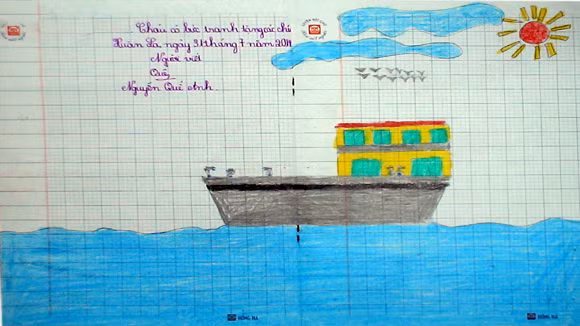 Cháu có bức tranh tặng các chú
Xuân La, ngày 31 tháng 7 năm 2014
Người viết
Quế
Nguyễn Quế Anh
HỒNG HÀ
HỒNG HÀ